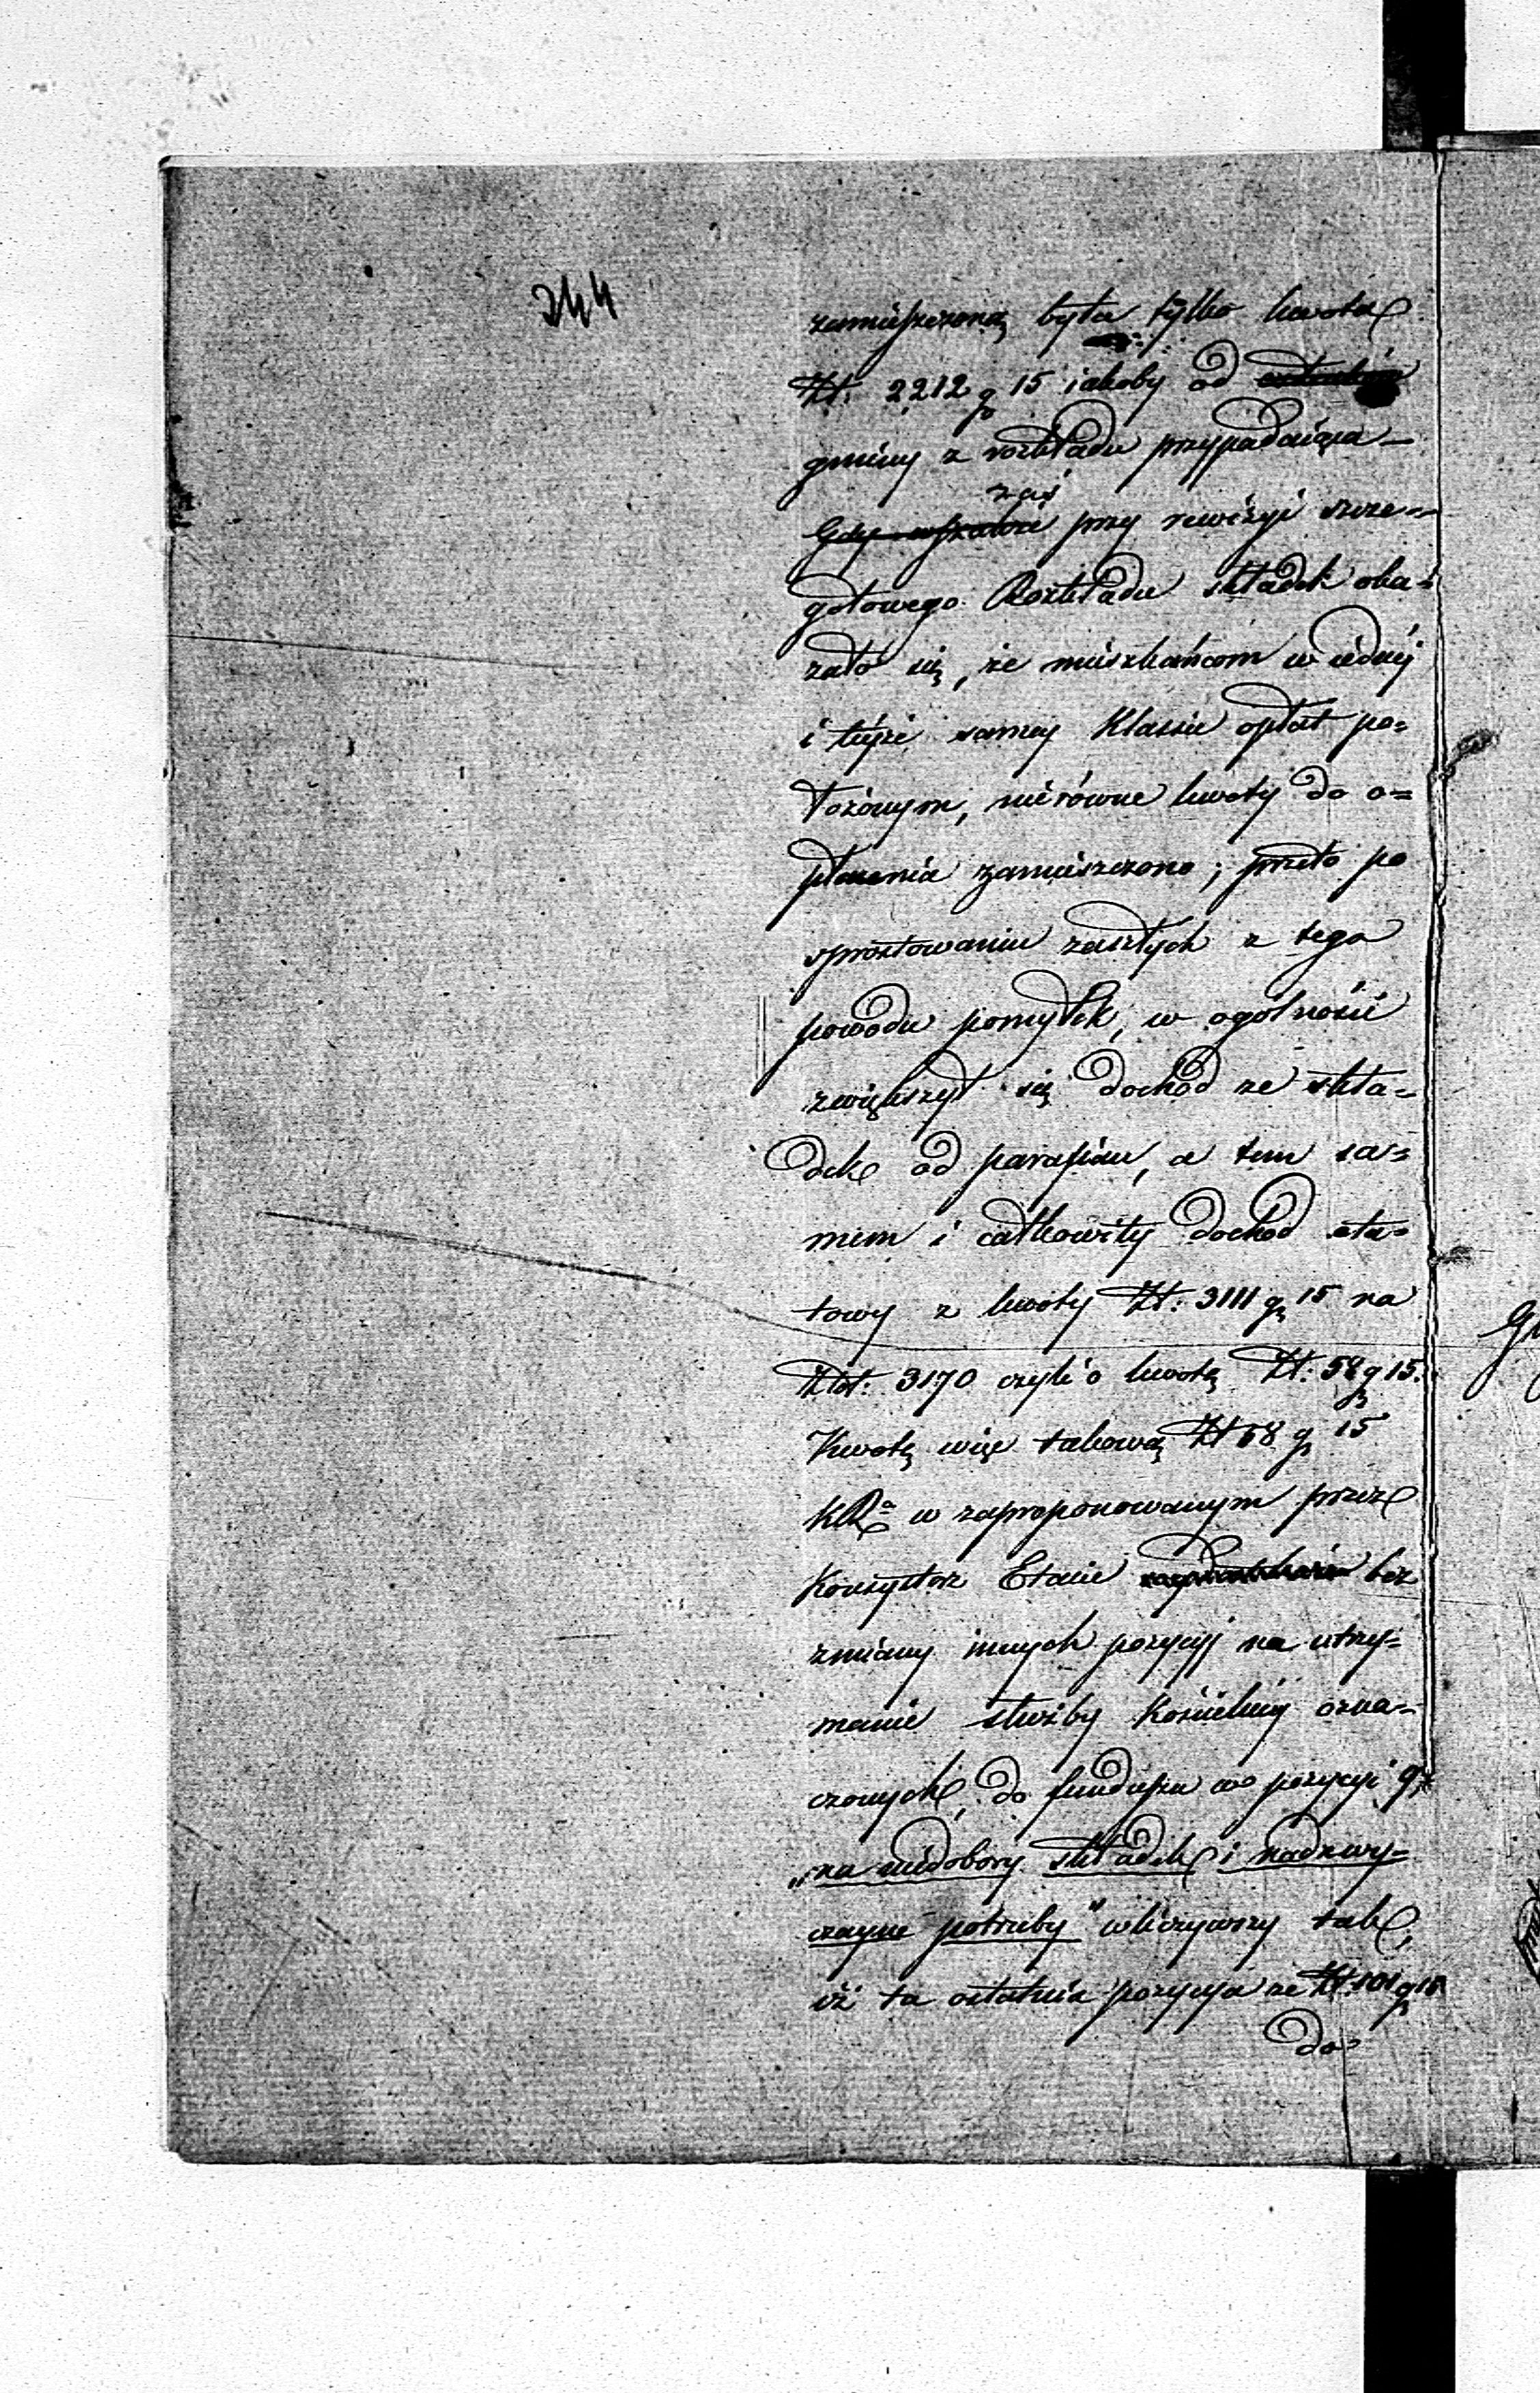 244
zamieszczoną była tylko kwota
Zł: 2212 gr 15 iakoby od
gminy z rozkładu przypadaiąca —
zaś
Gdy wszakże przy rewizyi szcze=
gółowego Rozkładu składek oka=
zało się, że mieszkańcom w iednéj
i téjże samey Klassie opłat po=
łożonym, nierówne kwoty do o=
płacenia zamieszczono; przeto po
sprostowaniu zaszłych z tego
powodu pomyłek, w ogólności
zwiększył się dochód ze skła=
dek od parafian, a tem sa=
mem i całkowity dochód eta=
towy z kwoty Zł: 3111 gr 15 na
Złot: 3170 czyli o kwotę Zł: 58 gr 15.
Kwotę więc takową Zł 58 gr 15
KRa w zaproponowanym przez
Konsystorz Etacie bez
zmiany innych pozycyj na utrzy=
manie służby Kościelnéj ozna=
czonych, do funduszu w pozycyi 9.
„na niedobory składek i nadzwy=
czayne potrzeby" wliczywszy tak,
iż ta ostatnia pozycya ze Zł: 101 gr 15
do=